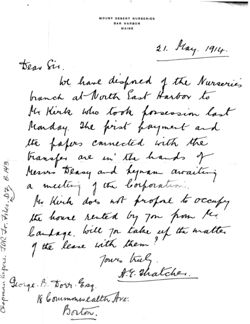 MOUNT DESERT NURSERIES
BAR HARBOR
MAINE
21. May. 1914.
Dear Sir.
We have disposed of the Nurseries
branch at North East Harbor to
Mr Kirk who took possession last
Monday. The first payment and
the papers connected with the
transfer are in the hands of
Messrs Deasy and Lynam awaiting
a meeting of the Corporation.
Mr Kirk does not propose to occupy
the house rented by you from Mr
Candage. Will you take up the matter
of the lease with them?
Yours truly.
A. E. Thatcher.
George. B. Dorr Esq.
18 Commonwealth Ave.
Boston.